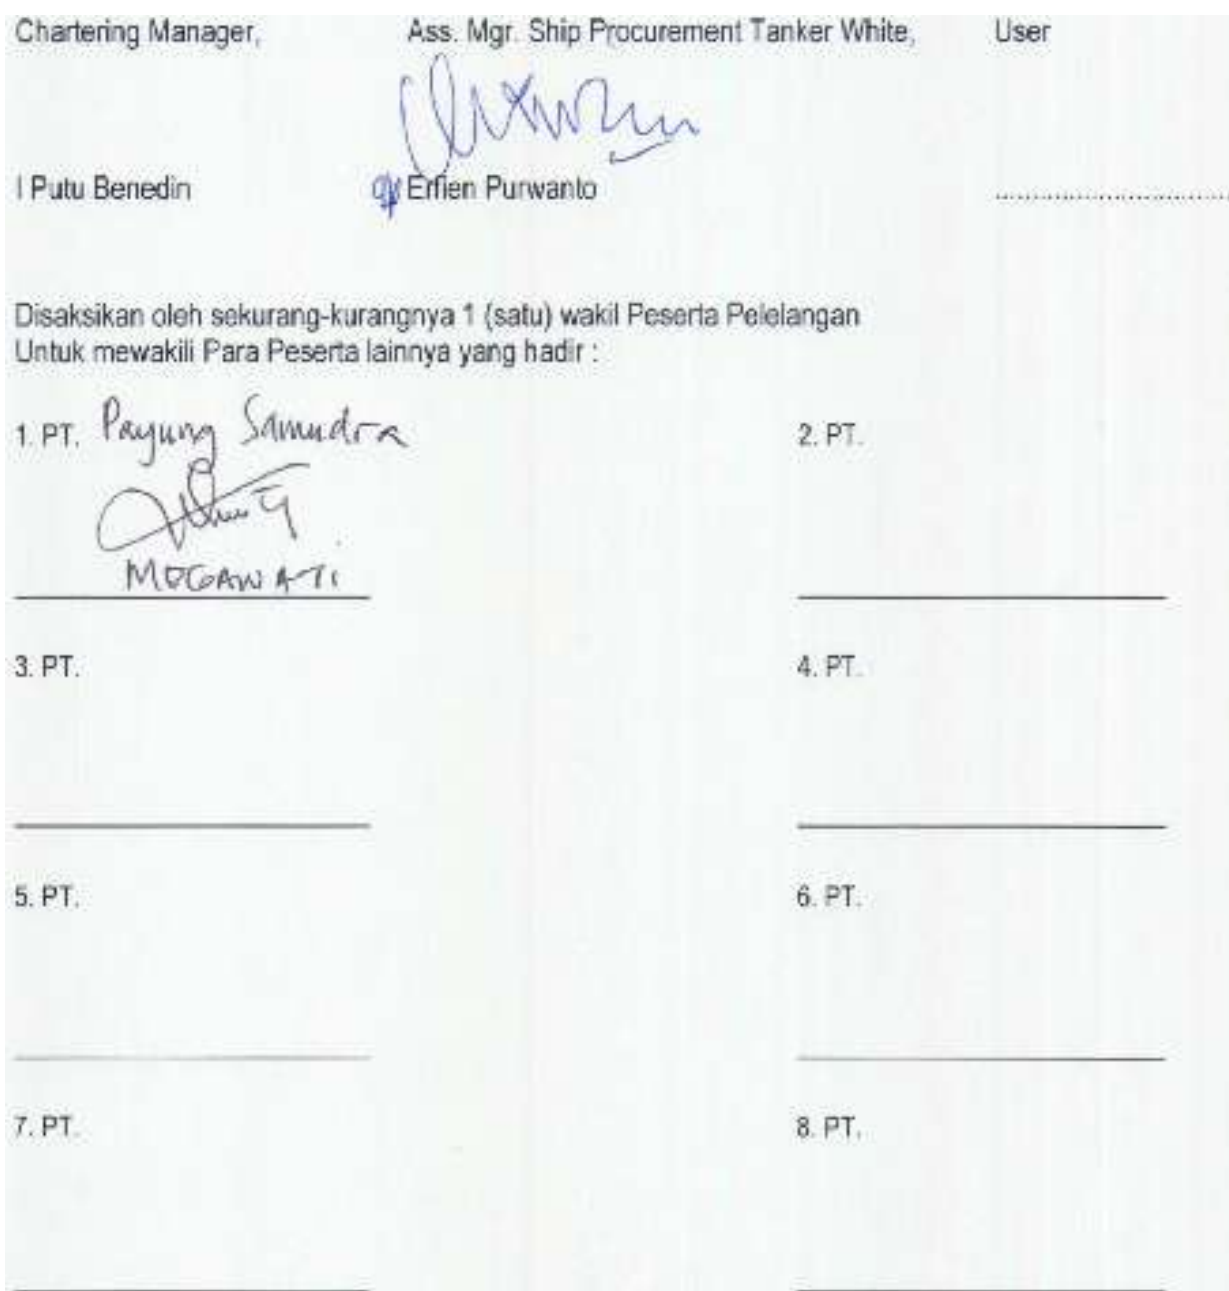 Chartering Manager, Ass. Mgr. Ship Procurement Tanker White, User
I Putu Benedin Erfien Purwanto ..............................
Disaksikan oleh sekurang-kurangnya 1 (satu) wakil Peserta Pelelangan
Untuk mewakili Para Peserta lainnya yang hadir :
1. PT. Payung Samudra 2. PT.
MEGAWATI
3. PT. 4. PT.
5. PT. 6. PT.
7. PT. 8. PT.